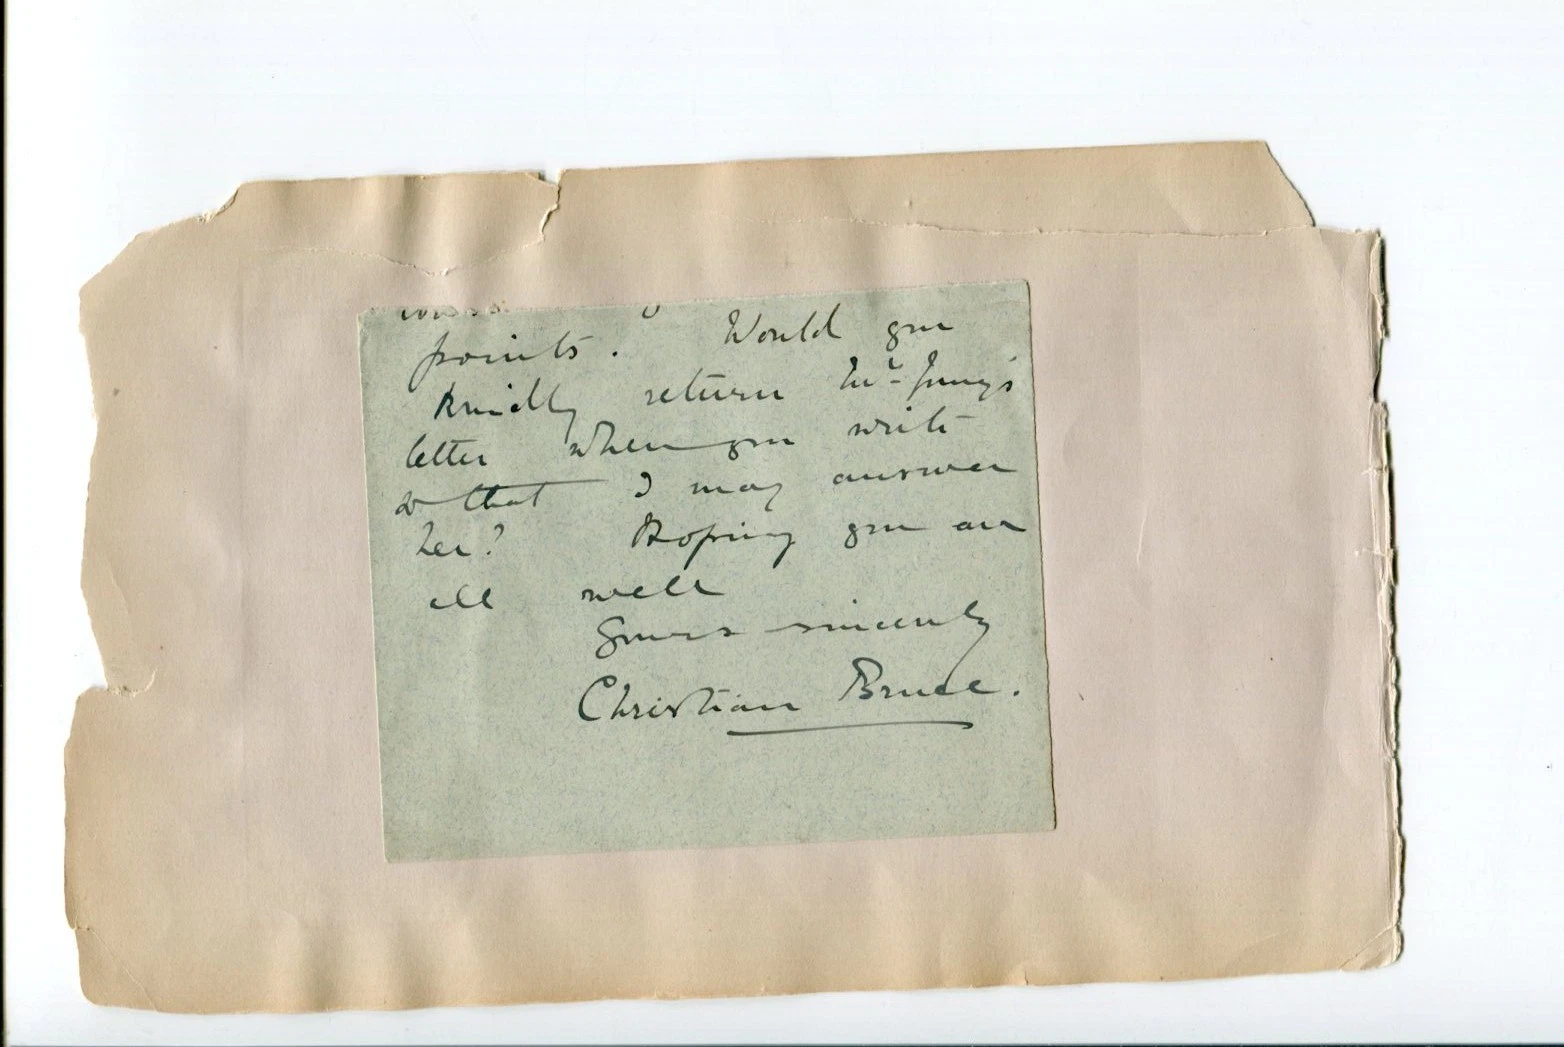 points. Would you
kindly return Mrs
letter when you write
so that I may answer
her? Hoping you are
all well
Yours sincerely
Christian Bruce.